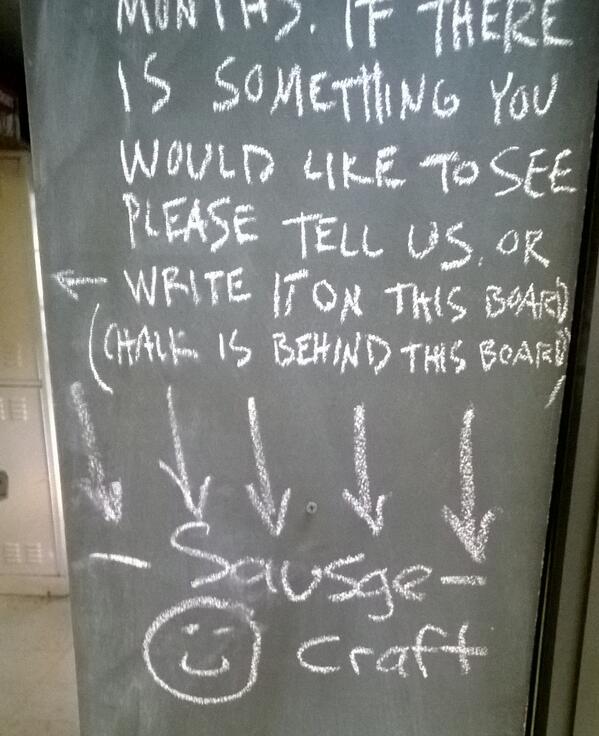 MONTHS. IF THERE
IS SOMETHING YOU
WOULD LIKE TO SEE
PLEASE TELL US. OR
WRITE IT ON THIS BOARD
(CHALK IS BEHIND THIS BOARD)
- Sausge -
craft